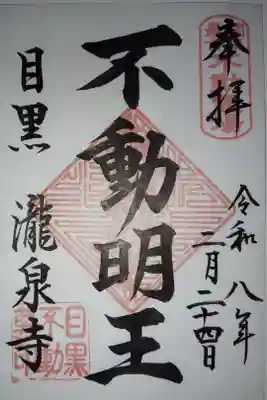 奉拝
令和八年
二月二十四日
不動明王
目黒 瀧泉寺
目黒
不動